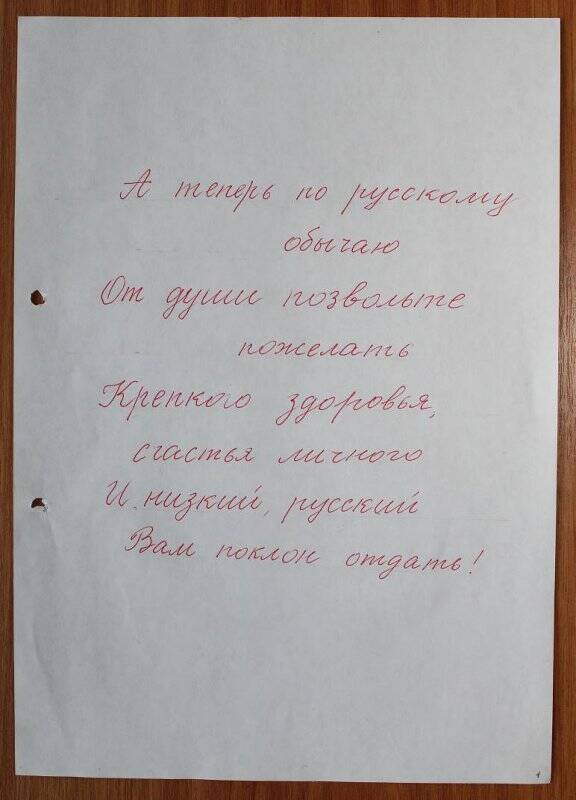 А теперь по русскому
обычаю
От души позвольте
пожелать
Крепкого здоровья,
счастья личного
И низкий, русский
Вам поклон отдать!